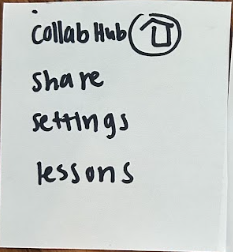 collab Hub
share
settings
lessons